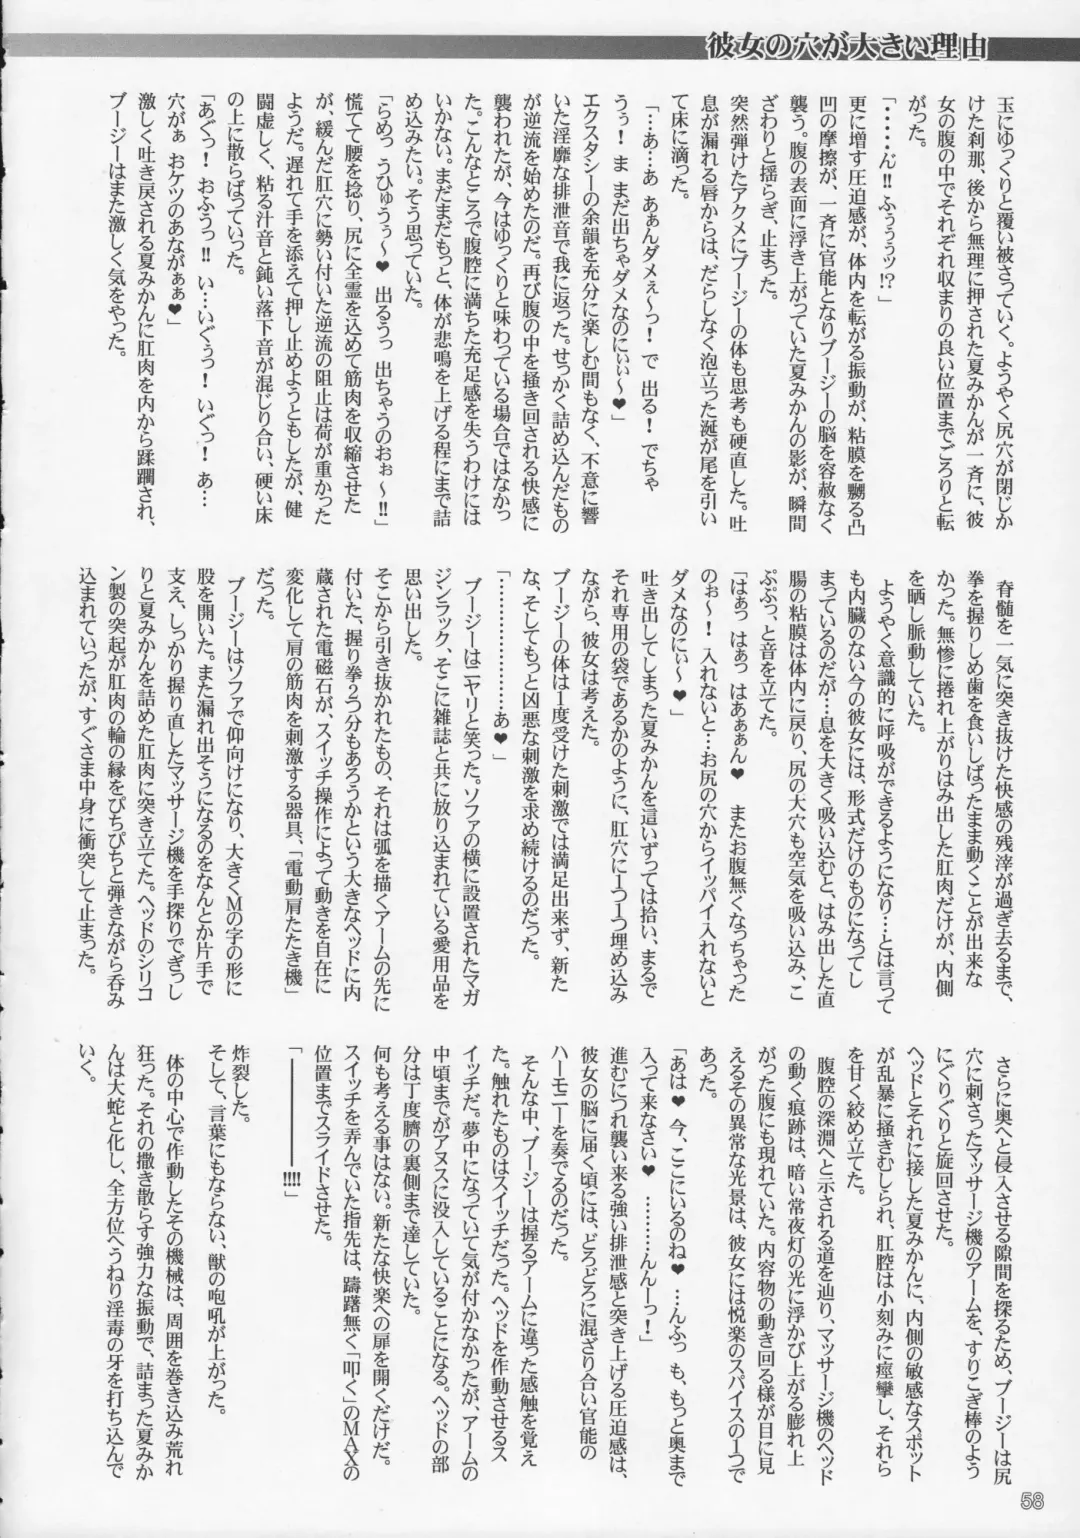 彼女の穴が大きい理由
玉にゆっくりと覆い被さっていく。ようやく尻穴が閉じか
けた刹那、後から無理に押された夏みかんが一斉に、彼
女の腹の中でそれぞれ収まりの良い位置までごろりと転
がった。
「・・・・・ん゛!! ふぅぅッ!?」
更に増す圧迫感が、体内を転がる振動が、粘膜を嬲る凸
凹の摩擦が、一斉に官能となりブージーの脳を容赦なく
襲う。腹の表面に浮き上がっていた夏みかんの影が、瞬間
ざわりと揺らぎ、止まった。
突然弾けたアクメにブージーの体も思考も硬直した。吐
息が漏れる唇からは、だらしなく泡立った涎が尾を引い
て床に滴った。
「…あ…あ あぁんダメぇ～っ! で 出る! でちゃ
うぅ! ま まだ出ちゃダメなのにぃぃ～♥」
エクスタシーの余韻を充分に楽しむ間もなく、不意に響
いた淫靡な排泄音で我に返った。せっかく詰め込んだもの
が逆流を始めたのだ。再び腹の中を掻き回される快感に
襲われたが、今はゆっくりと味わっている場合ではなかっ
た。こんなところで腹腔に満ちた充足感を失うわけには
いかない。まだまだもっと、体が悲鳴を上げる程にまで詰
め込みたい。そう思っていた。
「らめっ うひゅうぅ～♥ 出るうっ 出ちゃうのおぉ～!!」
慌てて腰を捻り、尻に全霊を込めて筋肉を収縮させた
が、緩んだ肛穴に勢い付いた逆流の阻止は荷が重かった
ようだ。遅れて手を添えて押し止めようともしたが、健
闘虚しく、粘る汁音と鈍い落下音が混じり合い、硬い床
の上に散らばっていった。
「あぐっ! おふうっ!! い…いぐぅっ! いぐっ! あ…
穴がぁ おケツのあながぁぁ♥」
激しく吐き戻される夏みかんに肛肉を内から蹂躙され、
ブージーはまた激しく気をやった。
脊髄を一気に突き抜けた快感の残滓が過ぎ去るまで、
拳を握りしめ歯を食いしばったまま動くことが出来な
かった。無惨に捲れ上がりはみ出した肛肉だけが、内側
を晒し脈動していた。
ようやく意識的に呼吸ができるようになり…とは言って
も内臓のない今の彼女には、形式だけのものになってし
まっているのだが…息を大きく吸い込むと、はみ出した直
腸の粘膜は体内に戻り、尻の大穴も空気を吸い込み、こ
ぷぷっ、と音を立てた。
「はぁっ はぁっ はあぁぁん♥ またお腹無くなっちゃった
のぉ～! 入れないと…お尻の穴からイッパイ入れないと
ダメなのにぃ～♥」
吐き出してしまった夏みかんを這いずっては拾い、まるで
それ専用の袋であるかのように、肛穴に1つ1つ埋め込み
ながら、彼女は考えた。
ブージーの体は1度受けた刺激では満足出来ず、新た
な、そしてもっと凶悪な刺激を求め続けるのだった。
「………………あ♥」
ブージーはニヤリと笑った。ソファの横に設置されたマガ
ジンラック、そこに雑誌と共に放り込まれている愛用品を
思い出した。
そこから引き抜かれたもの、それは弧を描くアームの先に
付いた、握り拳2つ分もあろうかという大きなヘッドに内
蔵された電磁石が、スイッチ操作によって動きを自在に
変化して肩の筋肉を刺激する器具、「電動肩たたき機」
だった。
ブージーはソファで仰向けになり、大きくMの字の形に
股を開いた。また漏れ出そうになるのをなんとか片手で
支え、しっかり握り直したマッサージ機を手探りでぎっし
りと夏みかんを詰めた肛肉に突き立てた。ヘッドのシリコ
ン製の突起が肛肉の輪の縁をぴちぴちと弾きながら呑み
込まれていったが、すぐさま中身に衝突して止まった。
さらに奥へと侵入させる隙間を探るため、ブージーは尻
穴に刺さったマッサージ機のアームを、すりこぎ棒のよう
にぐりぐりと旋回させた。
ヘッドとそれに接した夏みかんに、内側の敏感なスポット
が乱暴に掻きむしられ、肛腔は小刻みに痙攣し、それら
を甘く絞め立てた。
腹腔の深淵へと示される道を辿り、マッサージ機のヘッド
の動く痕跡は、暗い常夜灯の光に浮かび上がる膨れ上
がった腹にも現れていた。内容物の動き回る様が目に見
えるその異常な光景は、彼女には悦楽のスパイスの1つで
あった。
「あは♥ 今、ここにいるのね♥ …んふっ も、もっと奥まで
入って来なさい♥ ………んんーっ!」
進むにつれ襲い来る強い排泄感と突き上げる圧迫感は、
彼女の脳に届く頃には、どろどろに混ざり合い官能の
ハーモニーを奏でるのだった。
そんな中、ブージーは握るアームに違った感触を覚え
た。触れたものはスイッチだった。ヘッドを作動させるス
イッチだ。夢中になっていて気が付かなかったが、アームの
中頃までがアヌスに没入していることになる。ヘッドの部
分は丁度臍の裏側まで達していた。
何も考える事はない。新たな快楽への扉を開くだけだ。
スイッチを弄んでいた指先は、躊躇無く「叩く」のMAXの
位置までスライドさせた。
「――――――!!!!」
炸裂した。
そして、言葉にもならない、獣の咆吼が上がった。
体の中心で作動したその機械は、周囲を巻き込み荒れ
狂った。それの撒き散らす強力な振動で、詰まった夏みか
んは大蛇と化し、全方位へうねり淫毒の牙を打ち込んで
いく。
58